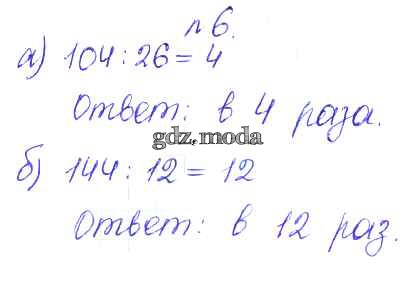 № 6.
а) 104 : 26 = 4
Ответ: в 4 раза.
gdz.moda
б) 144 : 12 = 12
Ответ: в 12 раз.